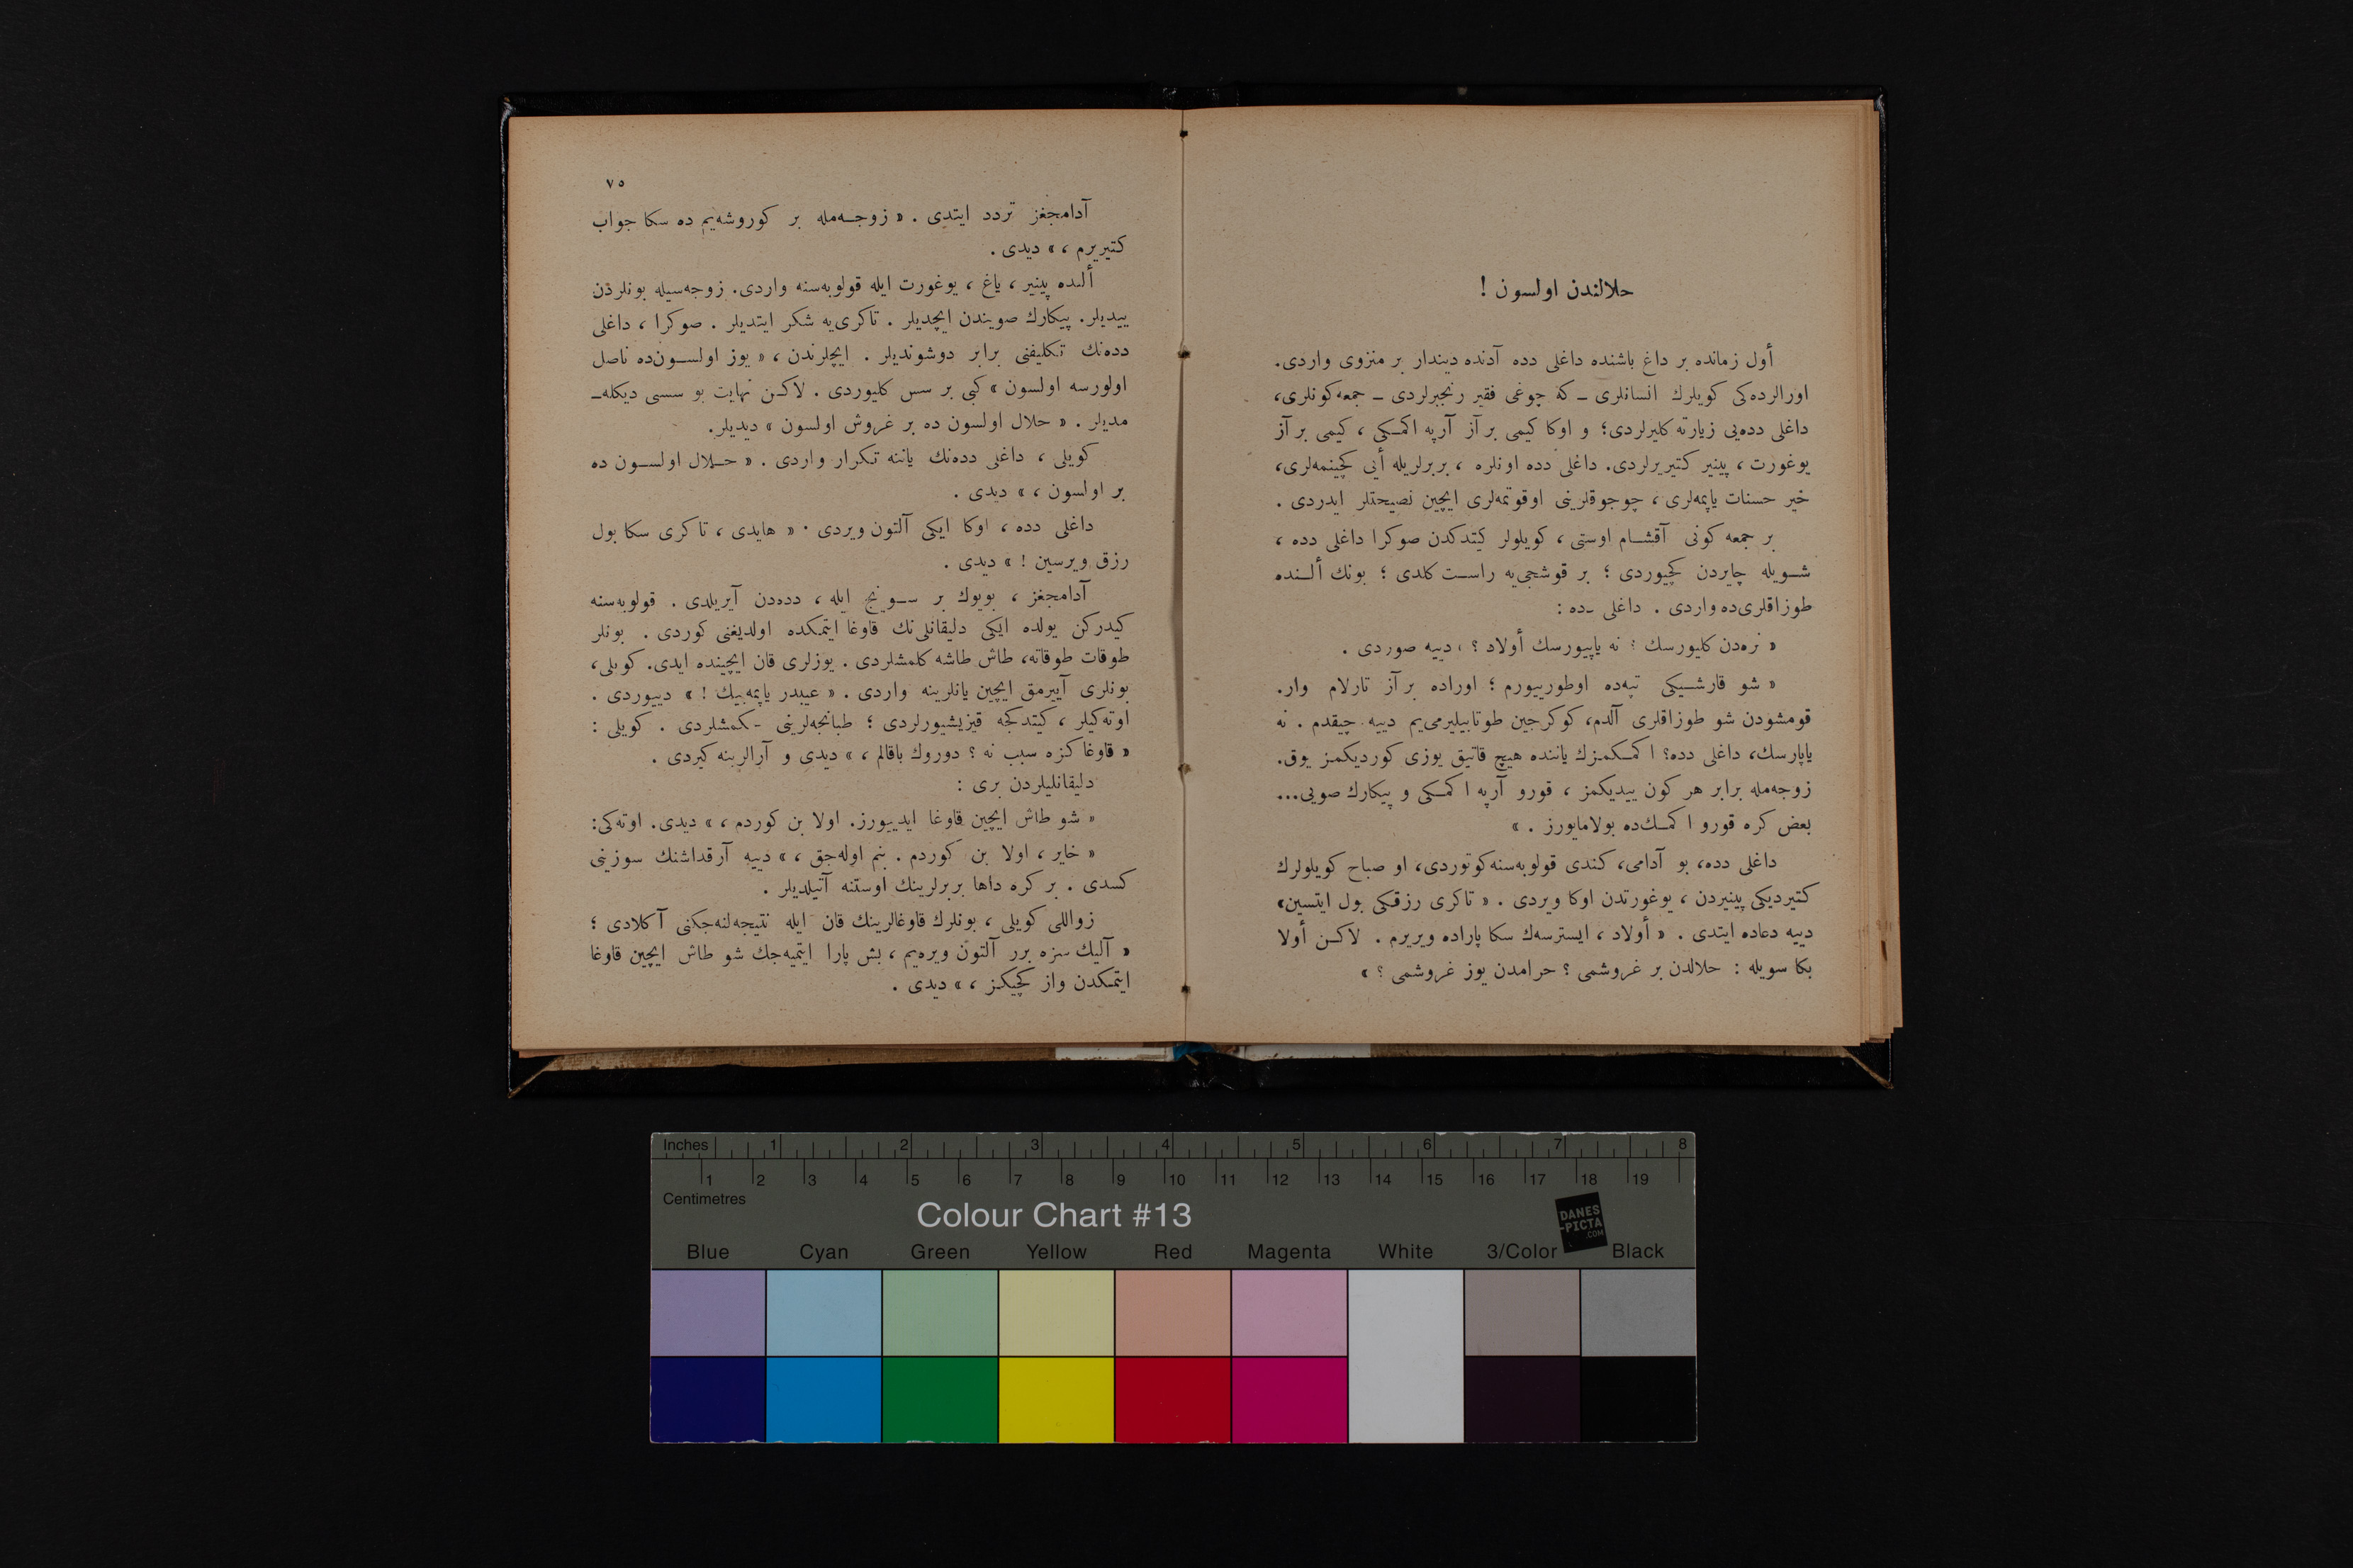 حلالندن اولسون !
أول زمانده بر داغ باشنده داغلی دده آدنده دیندار بر منزوی واردی.
اورالرده‌کی کویلرك انسانلری ـ که چوغی فقیر رنجبرلردی ـ جمعه کونلری،
داغلی دده‌یی زیارته کلیرلردی؛ و اوکا کیمی بر آز آرپه اکمـکی ، کیمی بر آز
یوغورت ، پینیر کتیریرلردی. داغلی دده اونلره ، بربرلریله أیی کچینمه‌لری،
خیر حسنات یاپمه‌لری ، چوجوقلرینی اوقوتمه‌لری ایچین نصیحتلر ایدردی .
بر جمعه کونی آقشـام اوستی ، کویلولر کیتدکدن صوکرا داغلی دده ،
شـویله چایردن کچیوردی ؛ بر قوشجی‌یه راسـت کلدی ؛ بونك ألـنده
طوزاقلری‌ده واردی . داغلی ـده :
« نره‌دن کلیورسك ؛ نه یاپیورسك أولاد ؟ ، دییه صوردی .
« شو قارشـیکی تپه‌ده اوطورییورم ؛ اوراده بر آز تارلام وار.
قومشودن شو طوزاقلری آلدم، کوکرجین طوتابیلیرمی‌یم دییه چیقدم . نه
یاپارسك، داغلی دده؟ اکمـکمزك یاننده هیچ قاتیق یوزی کوردیکمز یوق.
زوجه‌مله برابر هر کون ییدیکمز ، قورو آرپه اکمـکی و پیکارك صویی...
بعض کره قورو اکمـك‌ده بولامایورز . »
داغلی دده، بو آدامی، کندی قولوبه‌سنه کوتوردی، او صباح کویلولرك
کتیردیکی پینیردن ، یوغورتدن اوکا ویردی . « تاکری رزقکی بول ایتسین»
دییه دعاده ایتدی . « أولاد ، ایسترسه‌ك سکا پاراده ویریرم . لاکـن أولا
بکا سویله : حلالدن بر غروشمی ؟ حرامدن یوز غروشمی ؟ »
٧٥
آدامجغز تردد ایتدی . « زوجـه‌مله بر کوروشه‌یم ده سکا جواب
کتیریرم ، » دیدی .
ألنده پینیر ، یاغ ، یوغورت ایله قولوبه‌سنه واردی. زوجه‌سیله بونلردن
ییدیلر. پیکارك صویندن ایچدیلر . تاکری‌یه شکر ایتدیلر . صوکرا ، داغلی
دده‌نك تکلیفنی برابر دوشوندیلر . ایچلرندن ، « یوز اولسـون‌ده ناصل
اولورسه اولسون » کبی بر سس کلیوردی . لاکـن نهایت بو سسی دیکله‌ـ
مدیلر . « حلال اولسون ده بر غروش اولسون » دیدیلر.
کویلی ، داغلی دده‌نك یاننه تکرار واردی . « حـلال اولسـون ده
بر اولسون ، » دیدی .
داغلی دده ، اوکا ایکی آلتون ویردی . « هایدی ، تاکری سکا بول
رزق ویرسین ! » دیدی .
آدامجغز ، بویوك بر سـوینج ایله ، دده‌دن آیریلدی . قولوبه‌سنه
کیدرکن یولده ایکی دلیقانلی‌نك قاوغا ایتمکده اولدیغنی کوردی . بونلر
طوقات طوقاته، طاش طاشه کلمشلردی . یوزلری قان ایچینده ایدی. کویلی،
بونلری آییرمق ایچین یانلرینه واردی . « عیبدر یاپمه‌ییك ! » دییوردی .
اوته‌کیلر ، کیتدکجه قیزیشیورلردی ؛ طبانجه‌لرینی ـکمشلردی . کویلی :
« قاوغاکزه سبب نه ؟ دوروك باقالم ، » دیدی و آرالرینه کیردی .
دلیقانلیلردن بری :
« شو طاش ایچین قاوغا ایدییورز. اولا بن کوردم ، » دیدی. اوته‌کی:
« خایر ، اولا بن کوردم . بنم اوله‌جق ، » دییه آرقداشنك سوزینی
کسدی . بر کره داها بربرلرینك اوستنه آتیلدیلر .
زواللی کویلی ، بونلرك قاوغالرینك قان ایله نتیجه‌لنه‌جکنی آکلادی ؛
« آلیك سزه برر آلتون ویره‌یم ، بش پارا ایتمیه‌جك شو طاش ایچین قاوغا
ایتمکدن واز کچیکز ، » دیدی .
Inches 1 2 3 4 5 6 7 8
1 2 3 4 5 6 7 8 9 10 11 12 13 14 15 16 17 18 19
Centimetres
Colour Chart #13
DANES
-PICTA
.COM
Blue Cyan Green Yellow Red Magenta White 3/Color Black